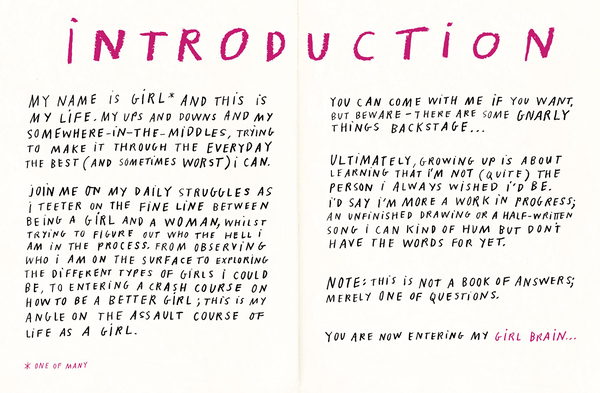 iNTRODUCTiON
MY NAME iS GiRL* AND THiS iS
MY LiFE. MY UPS AND DOWNS AND MY
SOMEWHERE-iN-THE-MiDDLES, TRYiNG
TO MAKE iT THROUGH THE EVERYDAY
THE BEST (AND SOMETiMES WORST) i CAN.
JOiN ME ON MY DAiLY STRUGGLES AS
i TEETER ON THE FiNE LiNE BETWEEN
BEiNG A GiRL AND A WOMAN, WHiLST
TRYiNG TO FiGURE OUT WHO THE HELL i
AM iN THE PROCESS. FROM OBSERViNG
WHO i AM ON THE SURFACE TO EXPLORiNG
THE DiFFERENT TYPES OF GiRLS i COULD
BE, TO ENTERiNG A CRASH COURSE ON
HOW TO BE A BETTER GiRL; THiS iS MY
ANGLE ON THE ASSAULT COURSE OF
LiFE AS A GiRL.
* ONE OF MANY
YOU CAN COME WiTH ME iF YOU WANT,
BUT BEWARE - THERE ARE SOME GNARLY
THiNGS BACKSTAGE...
ULTiMATELY, GROWiNG UP iS ABOUT
LEARNiNG THAT i'M NOT (QUiTE) THE
PERSON i ALWAYS WiSHED i'D BE.
i'D SAY i'M MORE A WORK iN PROGRESS;
AN UNFiNiSHED DRAWiNG OR A HALF-WRiTTEN
SONG i CAN KiND OF HUM BUT DON'T
HAVE THE WORDS FOR YET.
NOTE: THiS iS NOT A BOOK OF ANSWERS;
MERELY ONE OF QUESTiONS.
YOU ARE NOW ENTERiNG MY GiRL BRAiN...